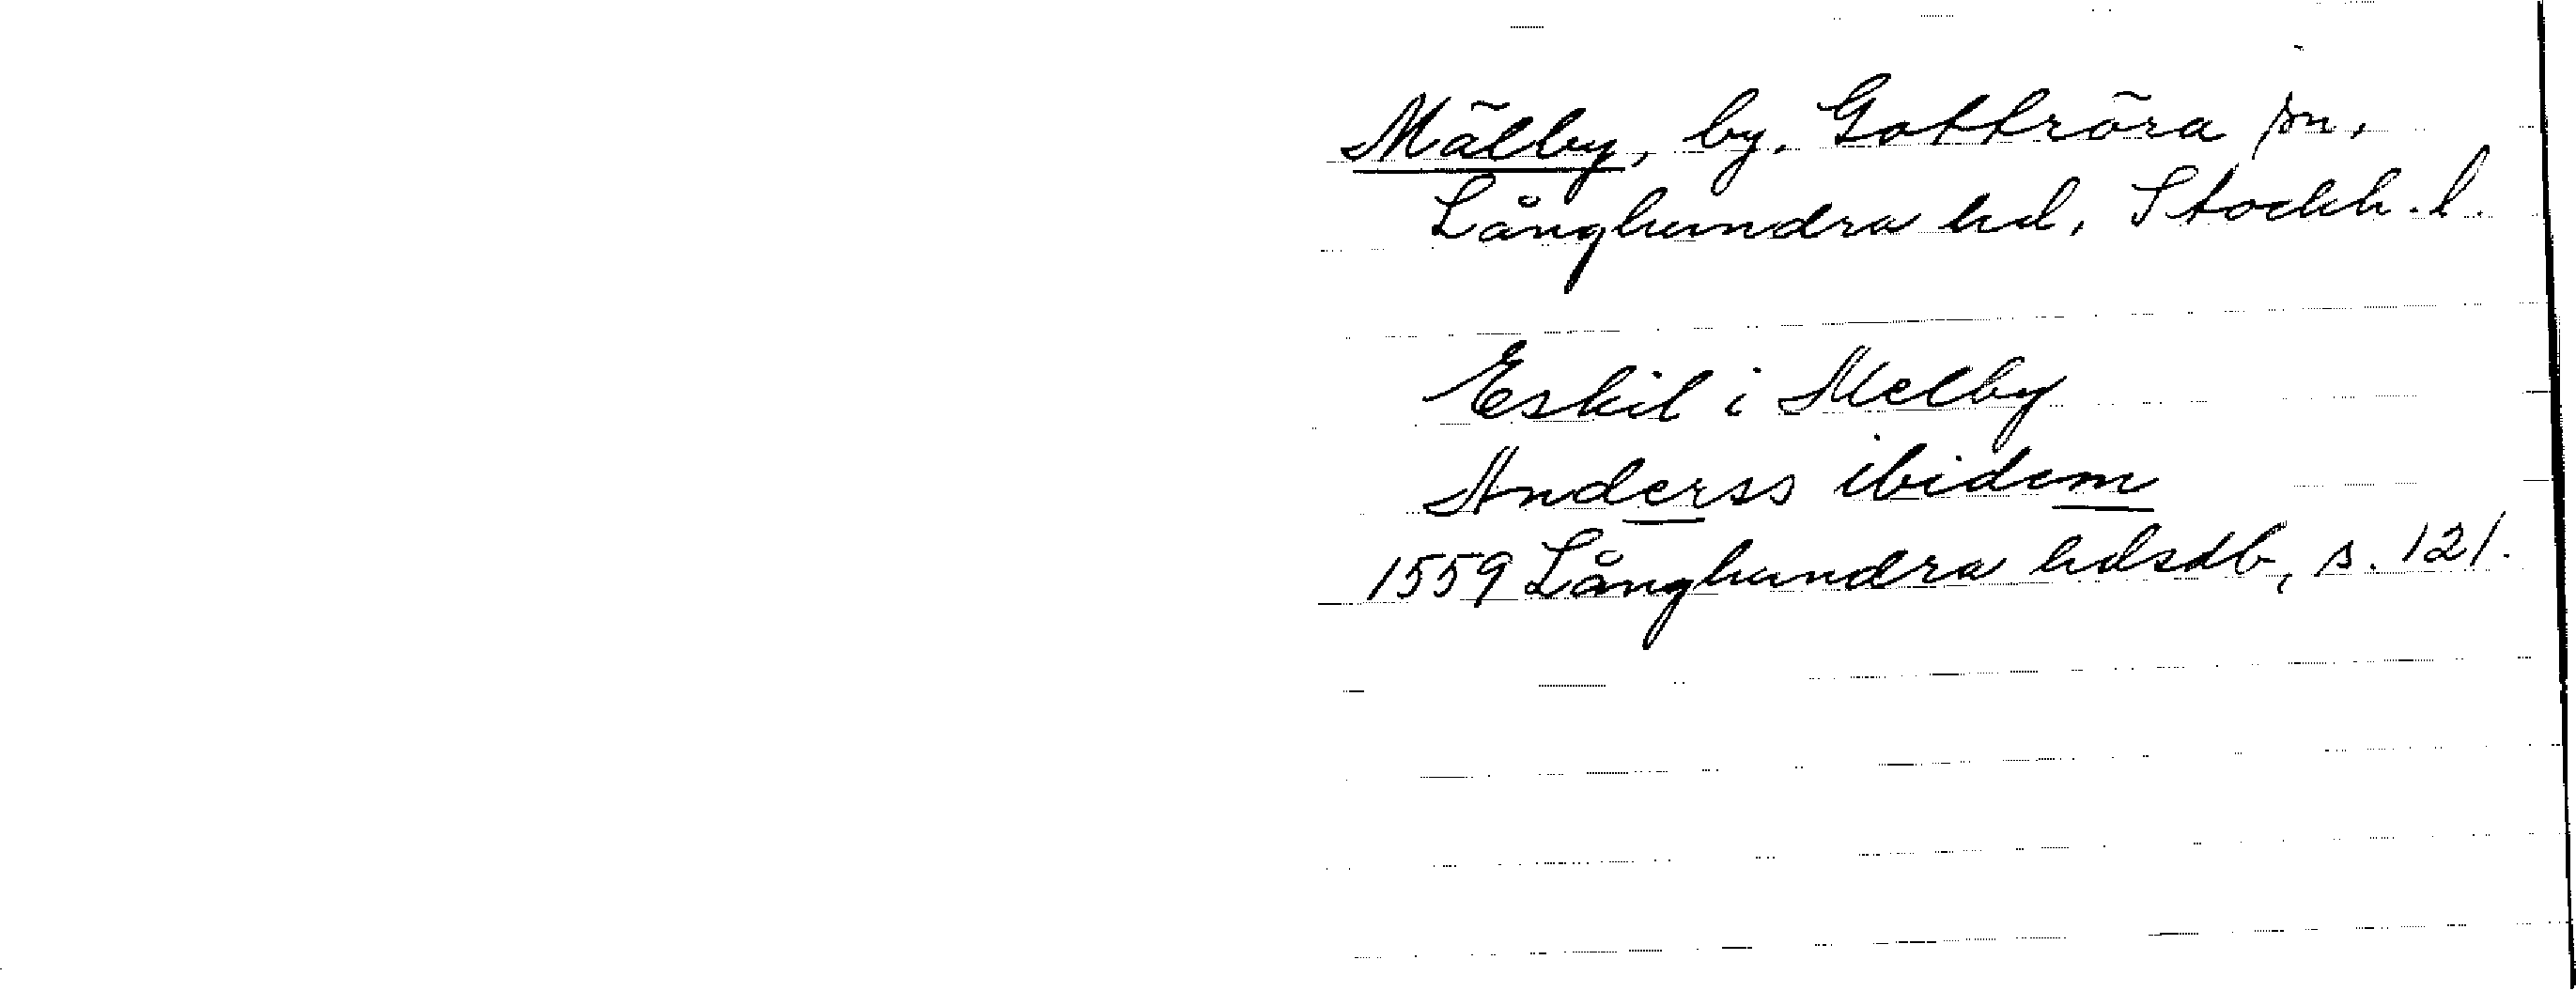 Mälby, by, Gottröra sn,
Långhundra hd, Stockh. l.
Eskil i Melby
Anderss ibidem
1559 Långhundra hdsdb, s. 121.